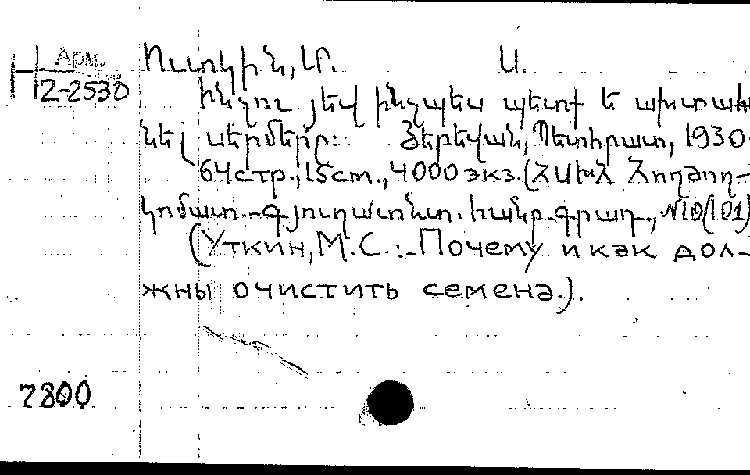 Арм.
H 2-2530
Ուտկին, Մ. Ս.
Ինչու յեվ ինչպես պետք ե ախտահա
նել սերմերը: Յերեվան, Պետհրատ, 1930
64стр., 15cm., 4000экз. (ՀՍԽՀ Հողժող-
կոմատ. - գյուղատնտ. հանր. գրադ., №10(101)
(Уткин, М.С. :- Почему и как дол-
жны очистить семена.).
7800